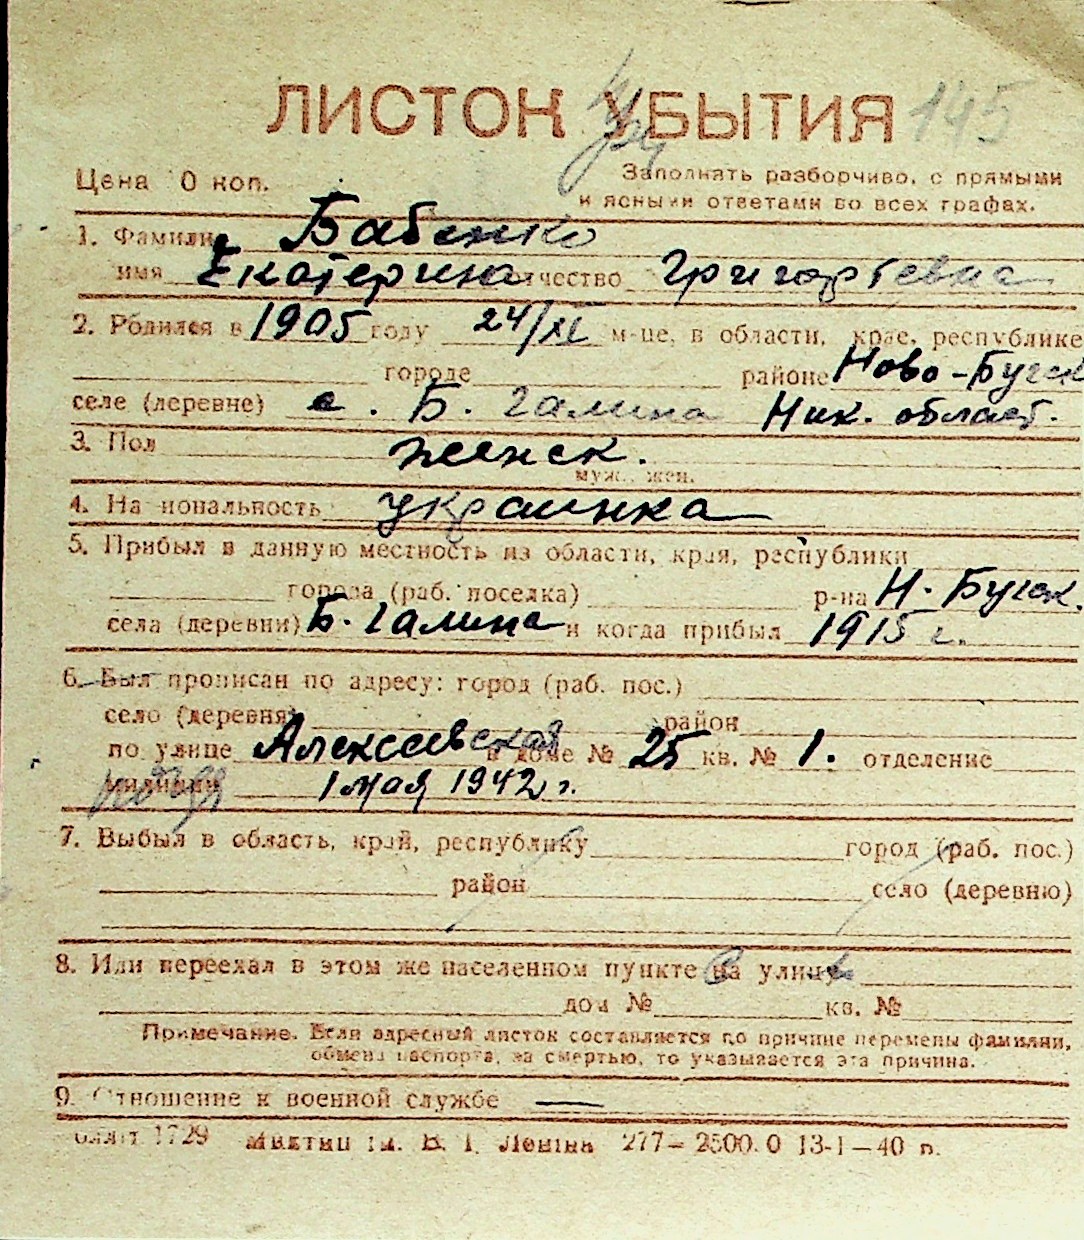 ЛИСТОК УБЫТИЯ 145
Цена 0 коп. Заполнять разборчиво, с прямыми
и ясными ответами во всех графах.
1. Фамилия Бабенко
имя Екатерина отчество Григорьевна
2. Родился в 1905 году 24/XI м-це, в области, крае, республике
городе районе Ново-Бугск
селе (деревне) с. Б. Галина Ник. област.
3. Пол женск.
муж., жен.
4. Национальность украинка
5. Прибыл в данную местность из области, края, республики
города (раб. поселка) р-на Н. Бугск.
села (деревни) Б. Галина и когда прибыл 1915 г.
6. Был прописан по адресу: город (раб. пос.)
село (деревня) район
по улице Алексеевская в доме № 25 кв. № 1. отделение
милиции 1 мая 1942 г.
7. Выбыл в область, край, республику город (раб. пос.)
район село (деревню)
8. Или переехал в этом же населенном пункте на улицу
дом № кв. №
Примечание. Если адресный листок составляется по причине перемены фамилии,
обмена паспорта, за смертью, то указывается эта причина.
9. Отношение к военной службе —
1729 ім. В. І. Леніна 277—2500.0 13-1—40 р.